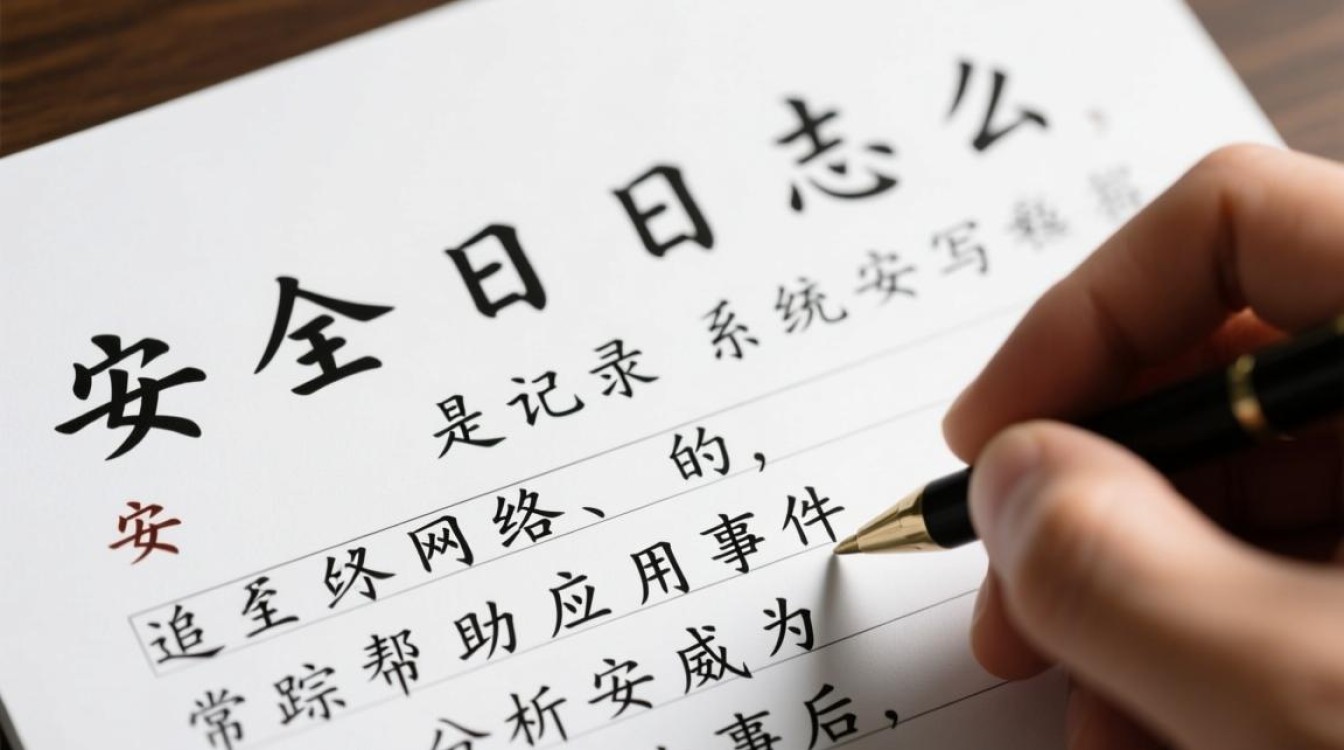 安全日日志么,
是记录 系统安写
安
追 网络、的,
常踪帮助应用事件
分析安威为
事后,